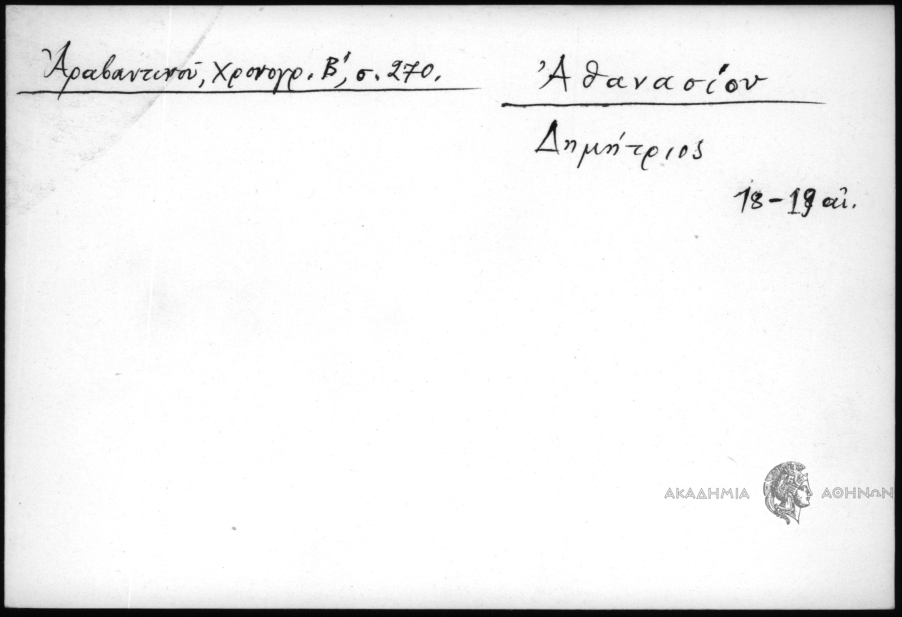 Ἀραβαντινοῦ, Χρονογρ. Β΄, σ. 270.
Ἀθανασίου
Δημήτριος
18-19 αἰ.
ΑΚΑΔΗΜΙΑ ΑΘΗΝΩΝ